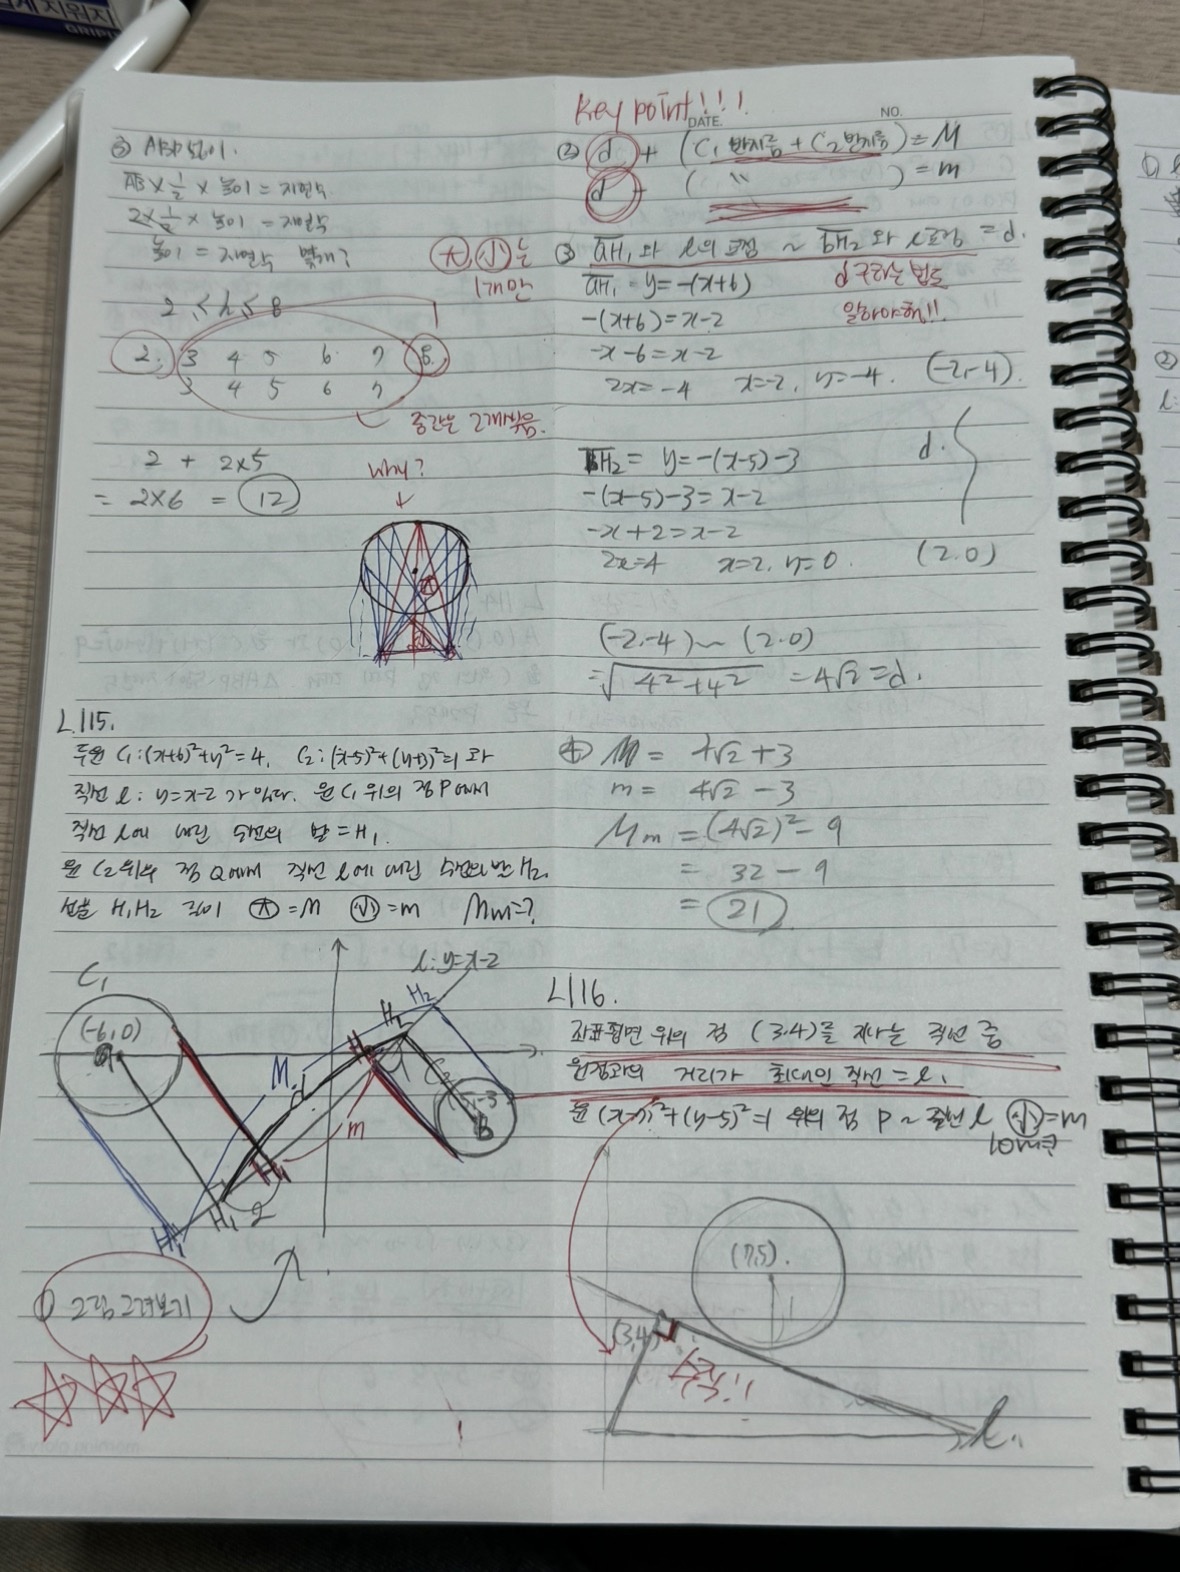 계 지워지
GRIP
③ ABP 넓이.
AB × 1/2 × 높이 = 자연수
2 × 1/2 × 높이 = 자연수
높이 = 자연수 몇개?
2 ≤ h ≤ 8
2. 3 4 5 6 7 8.
3 4 5 6 7
大, 小는
1개만
중간은 2개씩 있음.
2 + 2×5
= 2×6 = 12
why?
L115.
두원 C₁:(x+6)²+y²=4, C₂:(x-5)²+(y+3)²=1 과
직선 l: y=x-2 가 있다. 원 C₁ 위의 점 P에서
직선 l에 내린 수선의 발 = H₁.
원 C₂ 위의 점 Q에서 직선 l에 내린 수선의 발 H₂.
선분 H₁H₂ 길이 大=M 小=m Mm=?
C₁
(-6,0)
l:y=x-2
H₂
H₂
M
d.
m
B
H₁
H₁
H₁
2
① 그림그려보기
key point!!!
DATE. NO.
② d + (C₁ 반지름 + C₂ 반지름) = M
d - ( " ) = m
③ aH₁ 와 l의 교점 ~ bH₂ 와 l 교점 = d.
aH₁ y=-(x+6)
d 구하는 법도
알아야해!!
-(x+6)=x-2
-x-6=x-2
2x=-4 x=-2, y=-4. (-2,-4)
bH₂= y=-(x-5)-3
d.
-(x-5)-3=x-2
-x+2=x-2
2x=4 x=2, y=0. (2.0)
(-2,-4)~(2.0)
=√4²+4² =4√2=d.
④ M= 4√2+3
m= 4√2-3
Mm=(4√2)²-9
= 32-9
= 21
L116.
좌표평면 위의 점 (3,4)를 지나는 직선 중
원점과의 거리가 최대인 직선=l.
원 (x-7)²+(y-5)²=1 위의 점 P ~ 직선 l 小=m
10m=?
(7,5).
1
(3,4)
l.